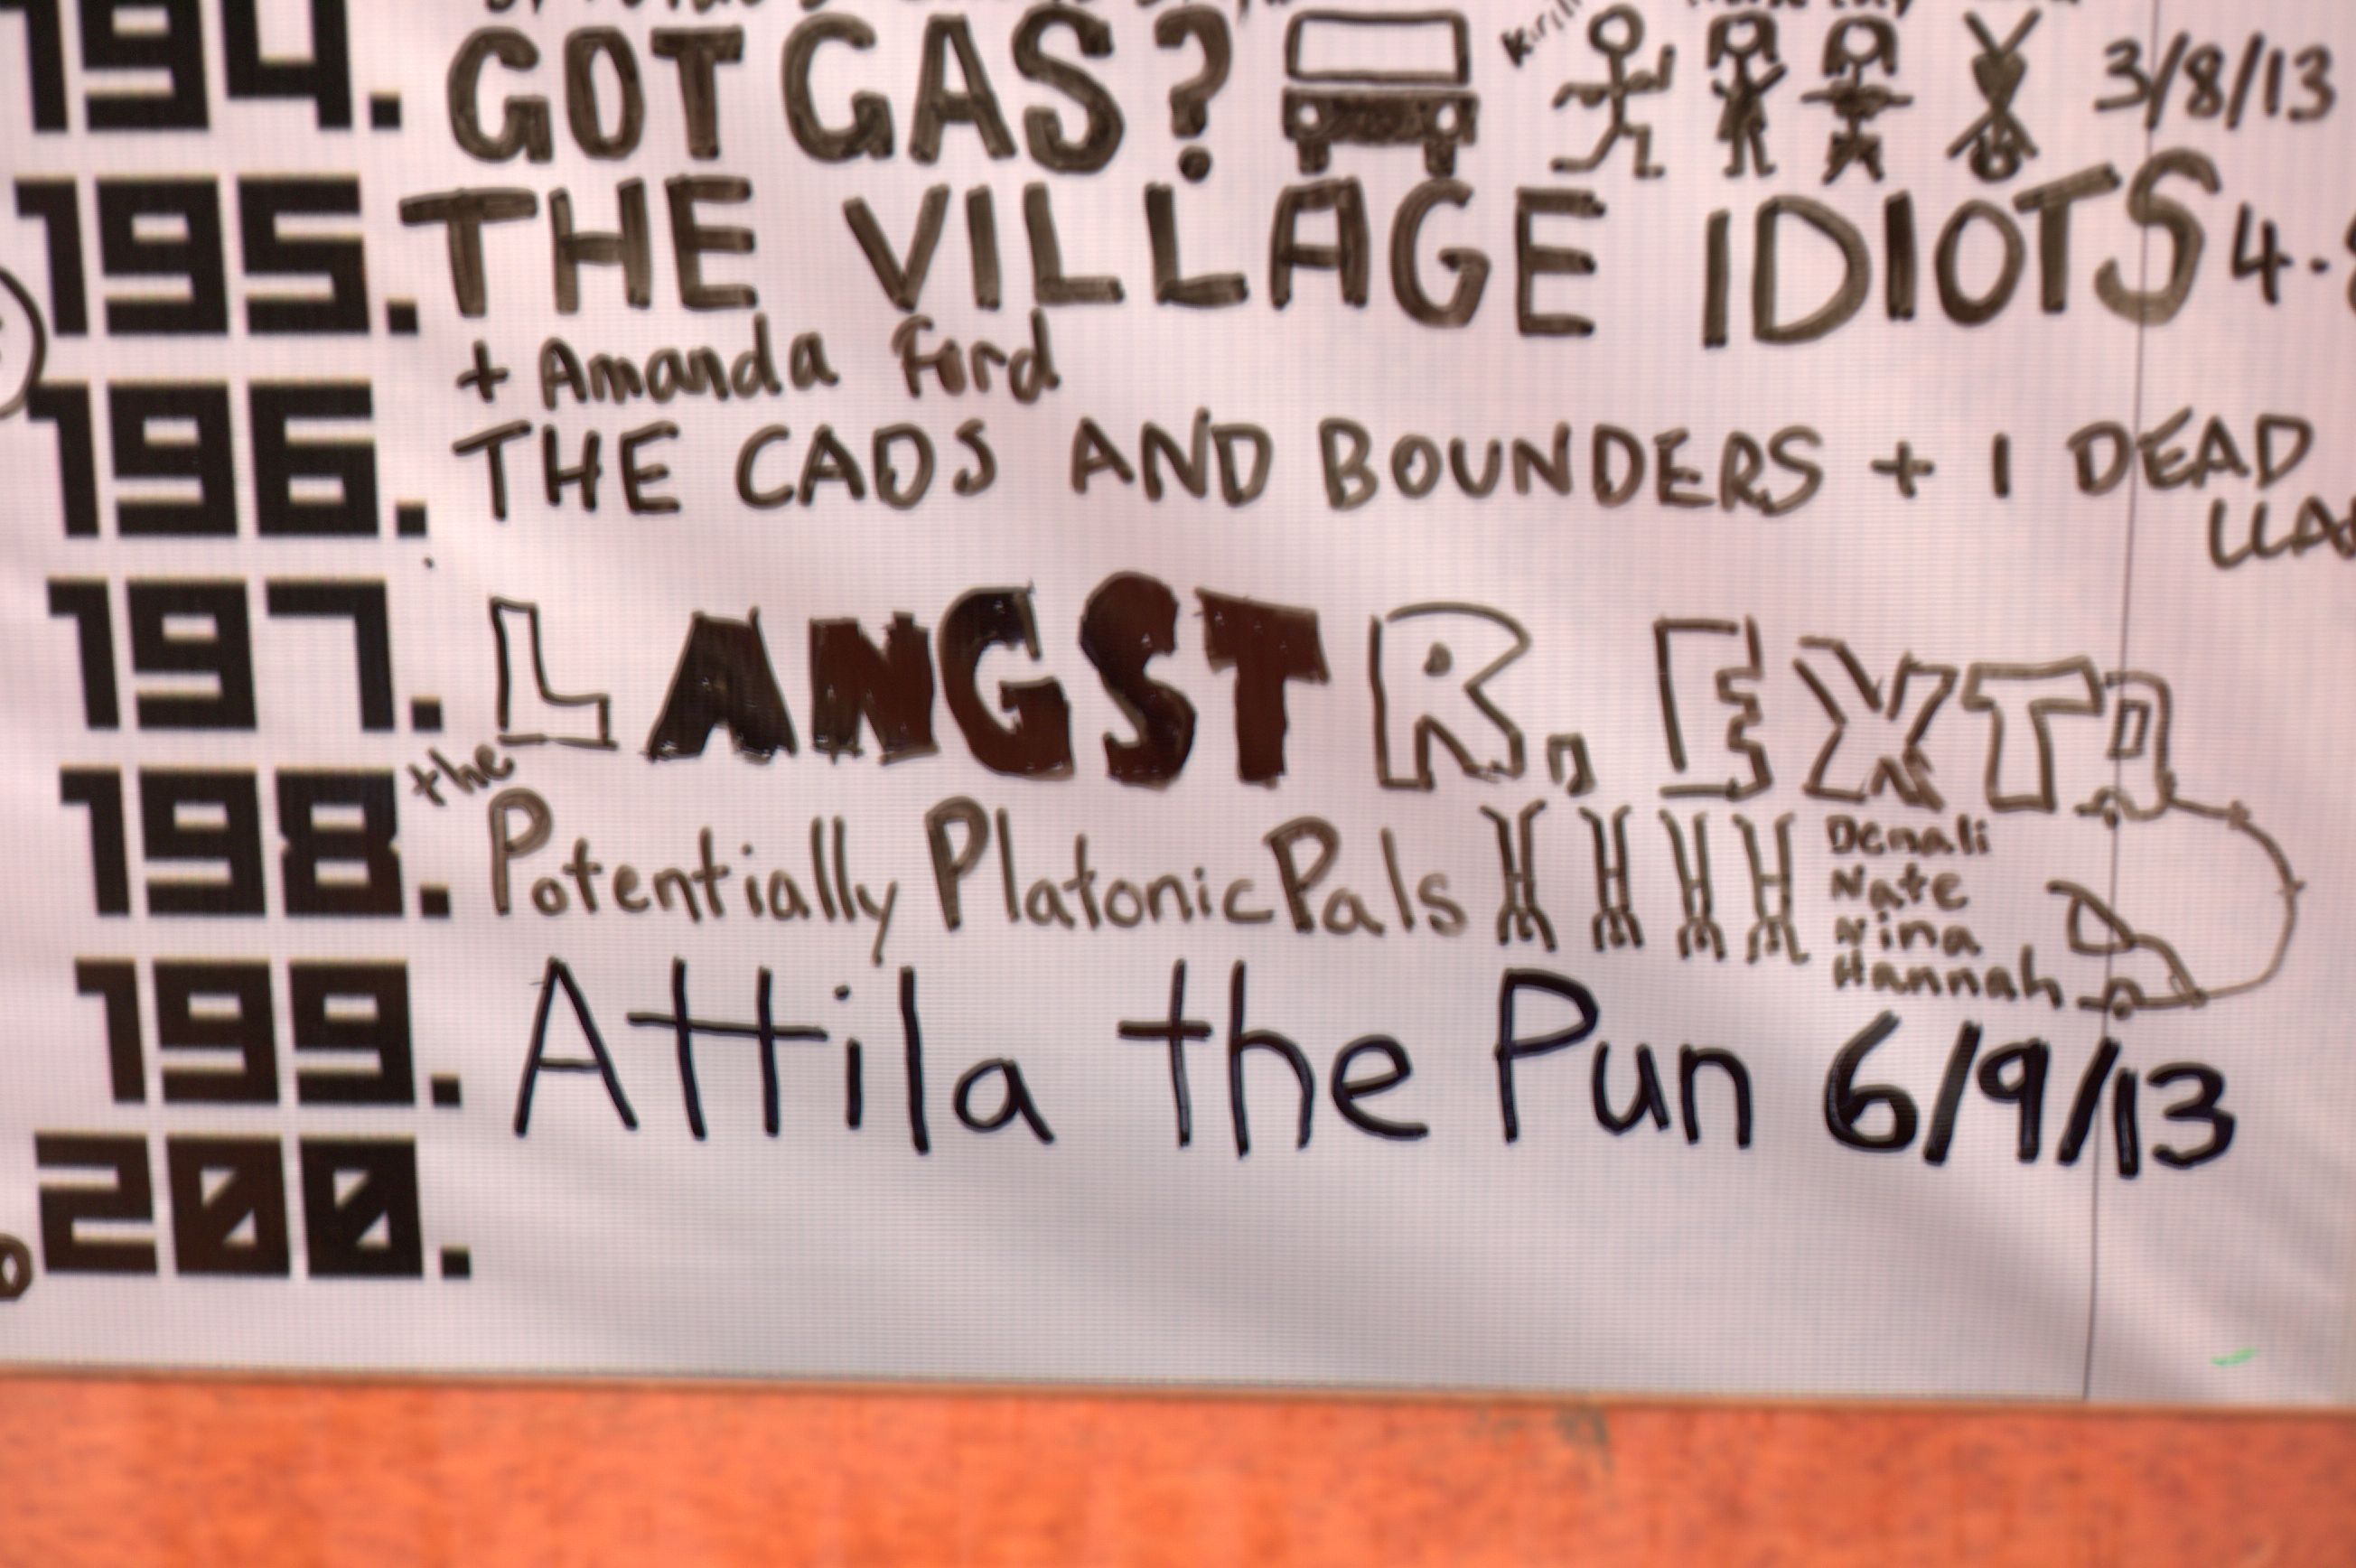 194. GOT GAS? Kirill 3/8/13
195. THE VILLAGE IDIOTS 4.
+ Amanda Ford
196. THE CADS AND BOUNDERS + 1 DEAD
197. LANGSTR. EXT
198. the Potentially Platonic Pals Denali
Nate
Nina
Hannah
199. Attila the Pun 6/9/13
200.